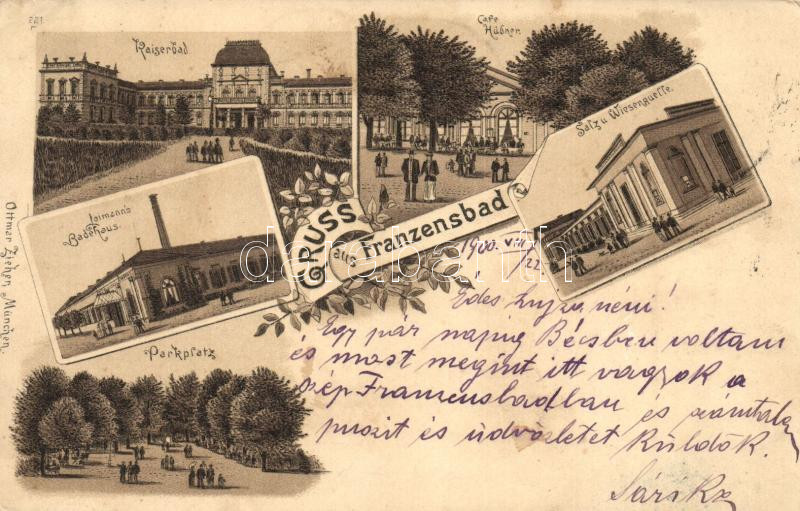 221
Kaiserbad
Cafe
Hübner.
Salz u Wiesenquelle.
Loimann's
Badehaus.
GRUSS
aus Franzensbad
Parkplatz
Ottmar Zieher, München.
darabanth
1900. VIII/22
Édes néni!
Egy pár napig Bécsben voltam
és most megint itt vagyok a
szép Franzensbadban és számtalan
puszit és üdvözletet küldök.
Sárska